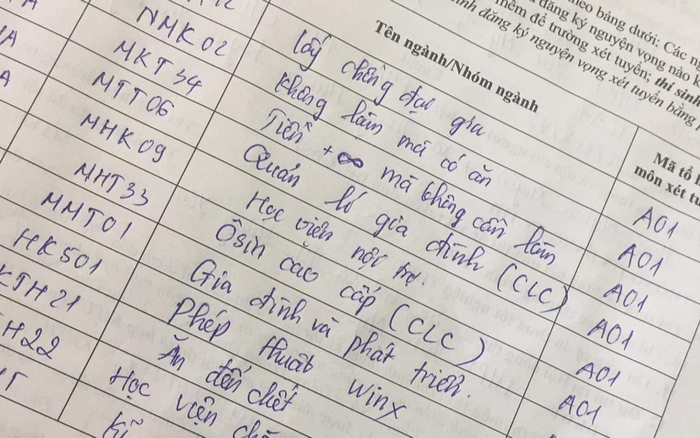 heo bảng dưới: Các
đăng ký nguyện vọng nào
mềm để trường xét tuyển; thí sinh
ình đăng ký nguyện vọng xét tuyển bằng
Tên ngành/Nhóm ngành
Mã tổ
môn xét
Lấy chồng đại gia A01
NMK02 Không làm mà có ăn A01
MKT34 Tiền +∞ mà không cần làm A01
MTT06 Quản lí gia đình (CLC) A01
MHK09 Học viện nội trợ A01
MHT33 Ôsin cao cấp (CLC) A01
MMT01 Gia đình và phát triển.
HK501 Phép thuật winx
KTH21 Ăn đến chết
H22 Học viện